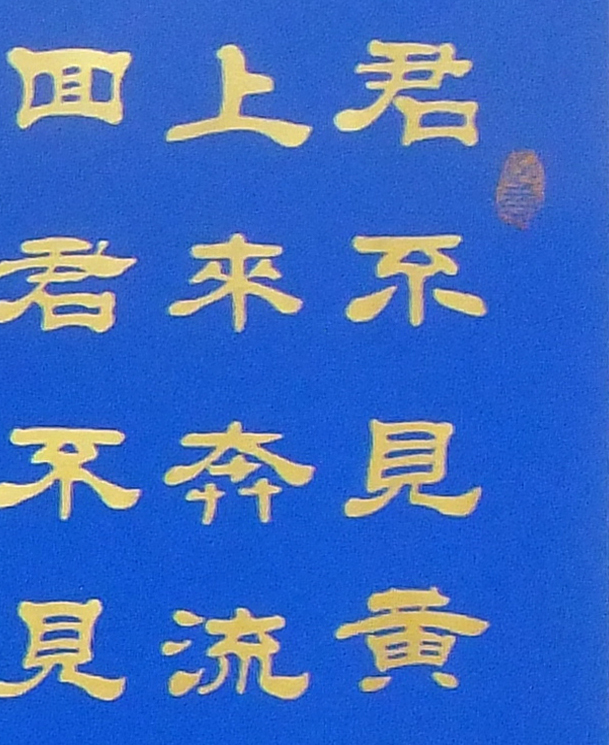 君不見黄
上來奔流
回君不見